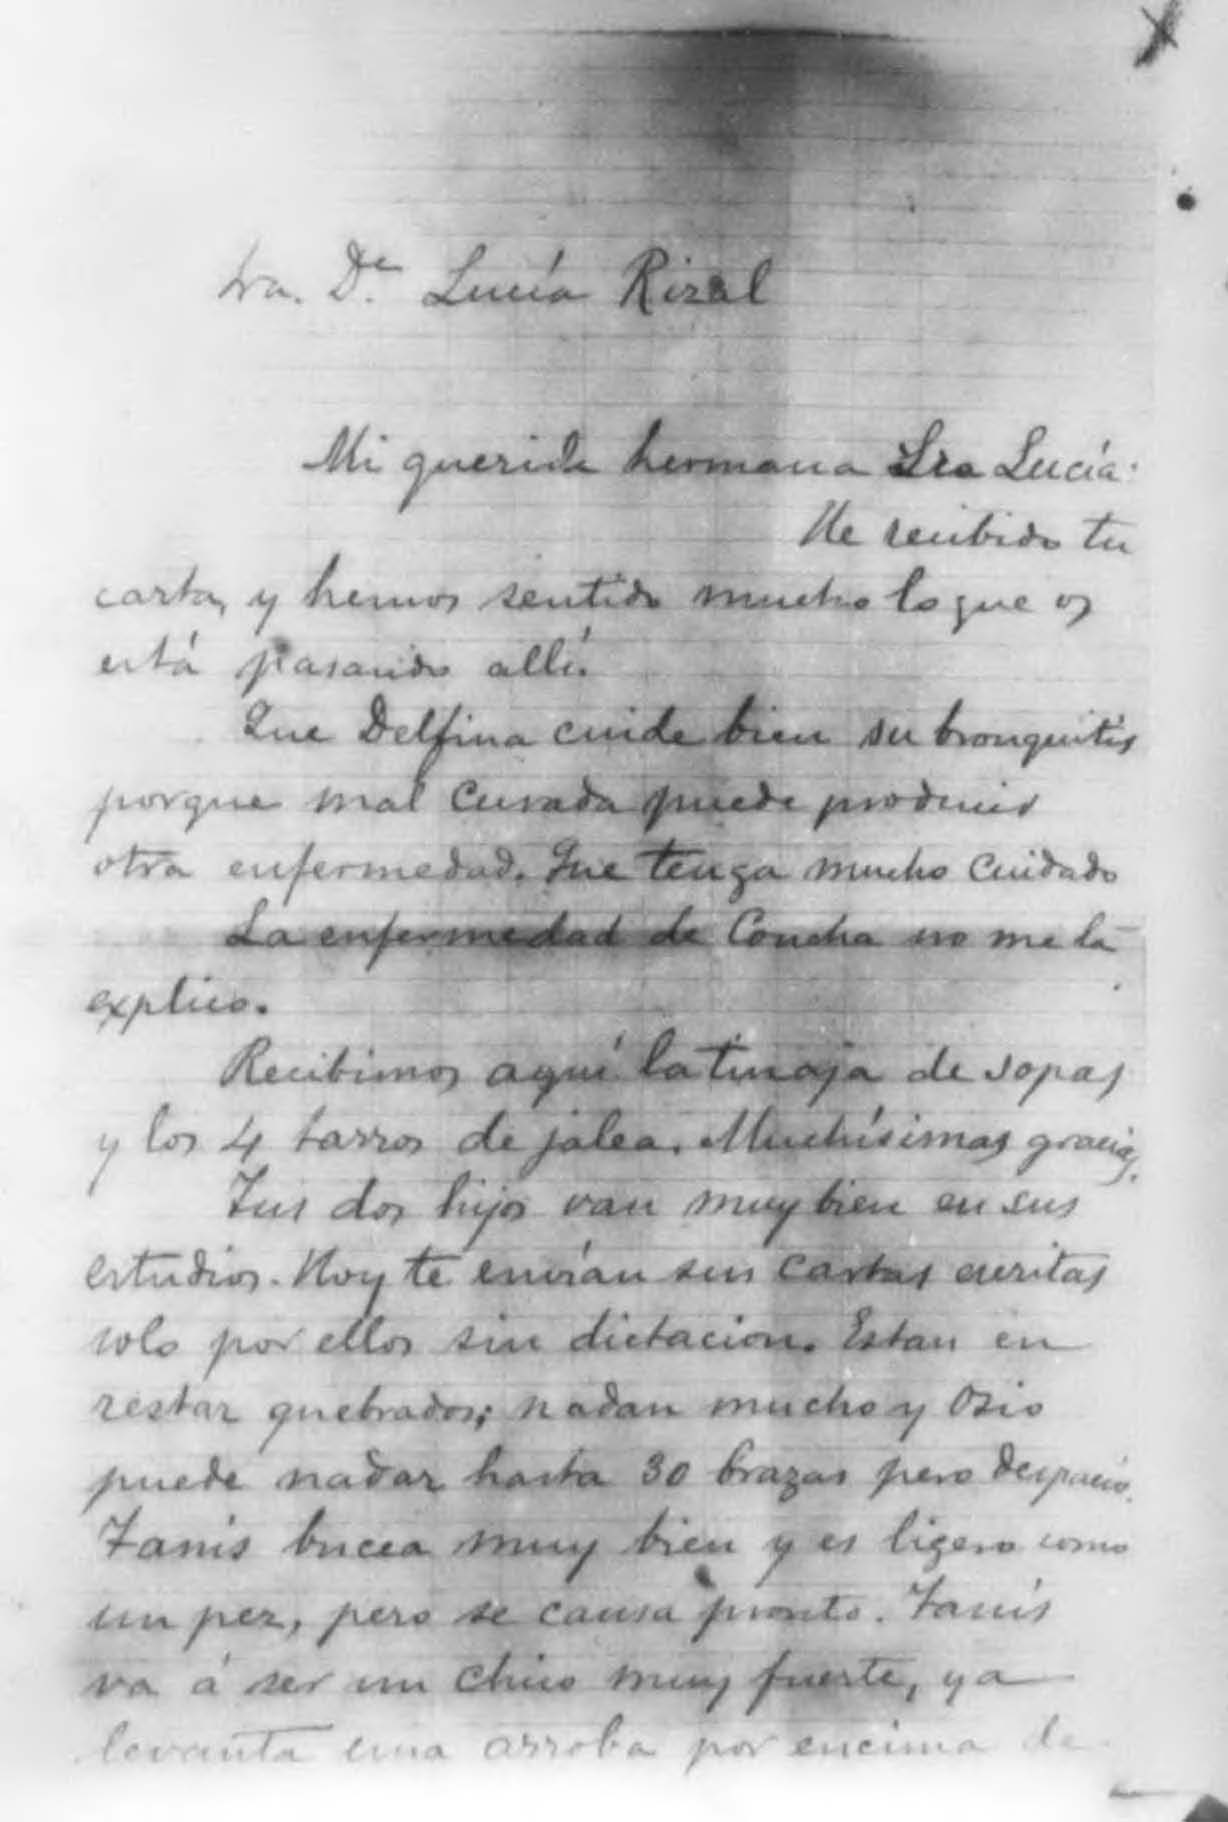 Sra. Dª Lucía Rizal
Mi querida hermana Sra Lucía:
He recibido tu
carta, y hemos sentido mucho lo que os
está pasando allí.
Que Delfina cuide bien su bronquitis
porque mal curada puede producir
otra enfermedad. Que tenga mucho cuidado
La enfermedad de Concha no me la
explico.
Recibimos aquí la tinaja de sopas
y los 4 tarros de jalea. Muchísimas gracias.
Tus dos hijos van muy bien en sus
estudios. Hoy te envían sus cartas escritas
solo por ellos sin dictacion. Estan en
restar quebrados; nadan mucho y Osio
puede nadar hasta 30 brazas pero despacio.
Tanis bucea muy bien y es ligero como
un pez, pero se cansa pronto. Tanis
va á ser un chico muy fuerte, ya
levanta una arroba por encima de